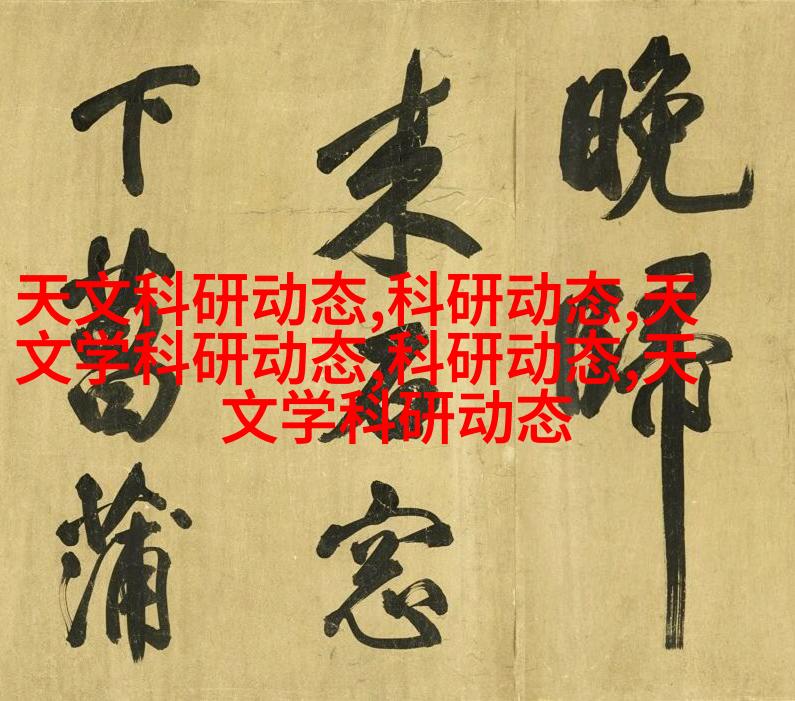 晚歸
来石窓
下菖蒲
天文科研动态,科研动态,天
文学科研动态,科研动态,天
文学科研动态